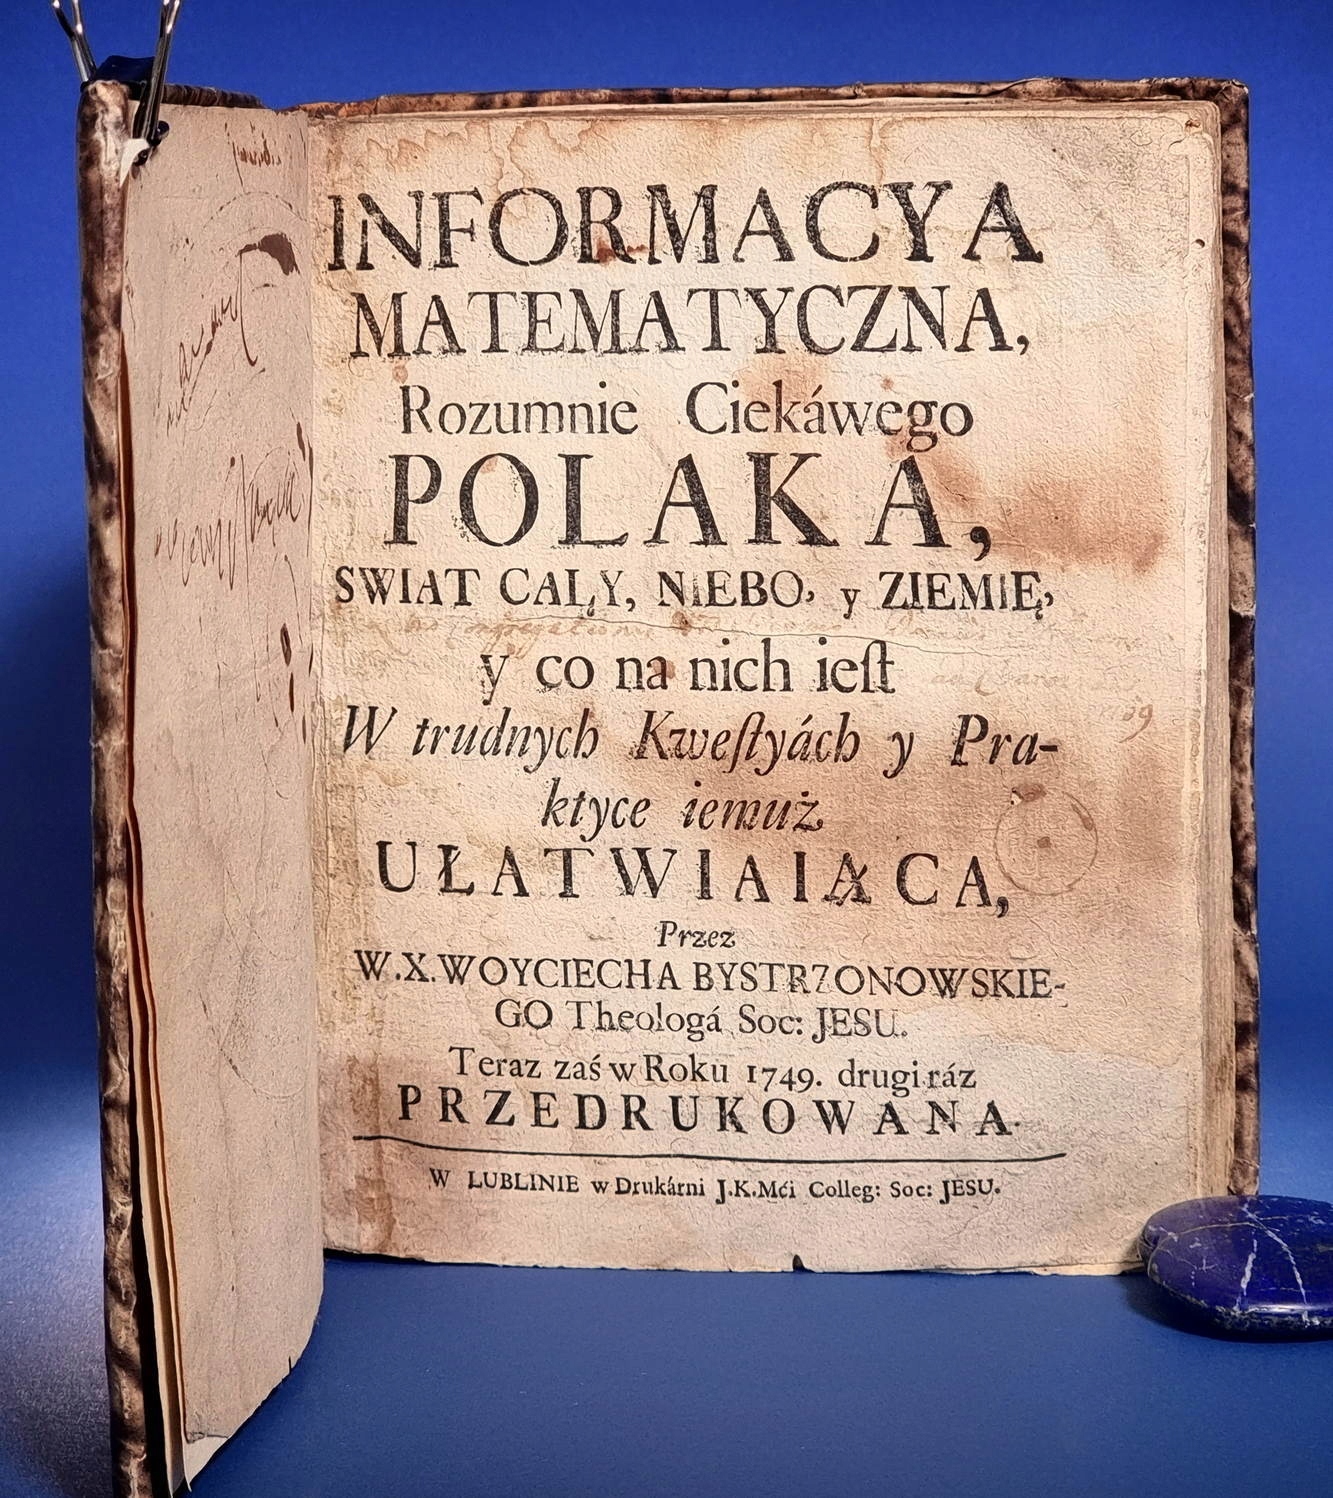 INFORMACYA
MATEMATYCZNA,
Rozumnie Ciekáwego
POLAKA,
SWIAT CAŁY, NIEBO, y ZIEMIĘ,
y co na nich ieſt
W trudnych Kweſtyách y Pra-
ktyce iemuż
UŁATWIAIĄCA,
Przez
W.X.WOYCIECHA BYSTRZONOWSKIE-
GO Theologá Soc: JESU.
Teraz zaś w Roku 1749. drugi ráz
PRZEDRUKOWANA.
W LUBLINIE w Drukárni J.K.Mći Colleg: Soc: JESU.